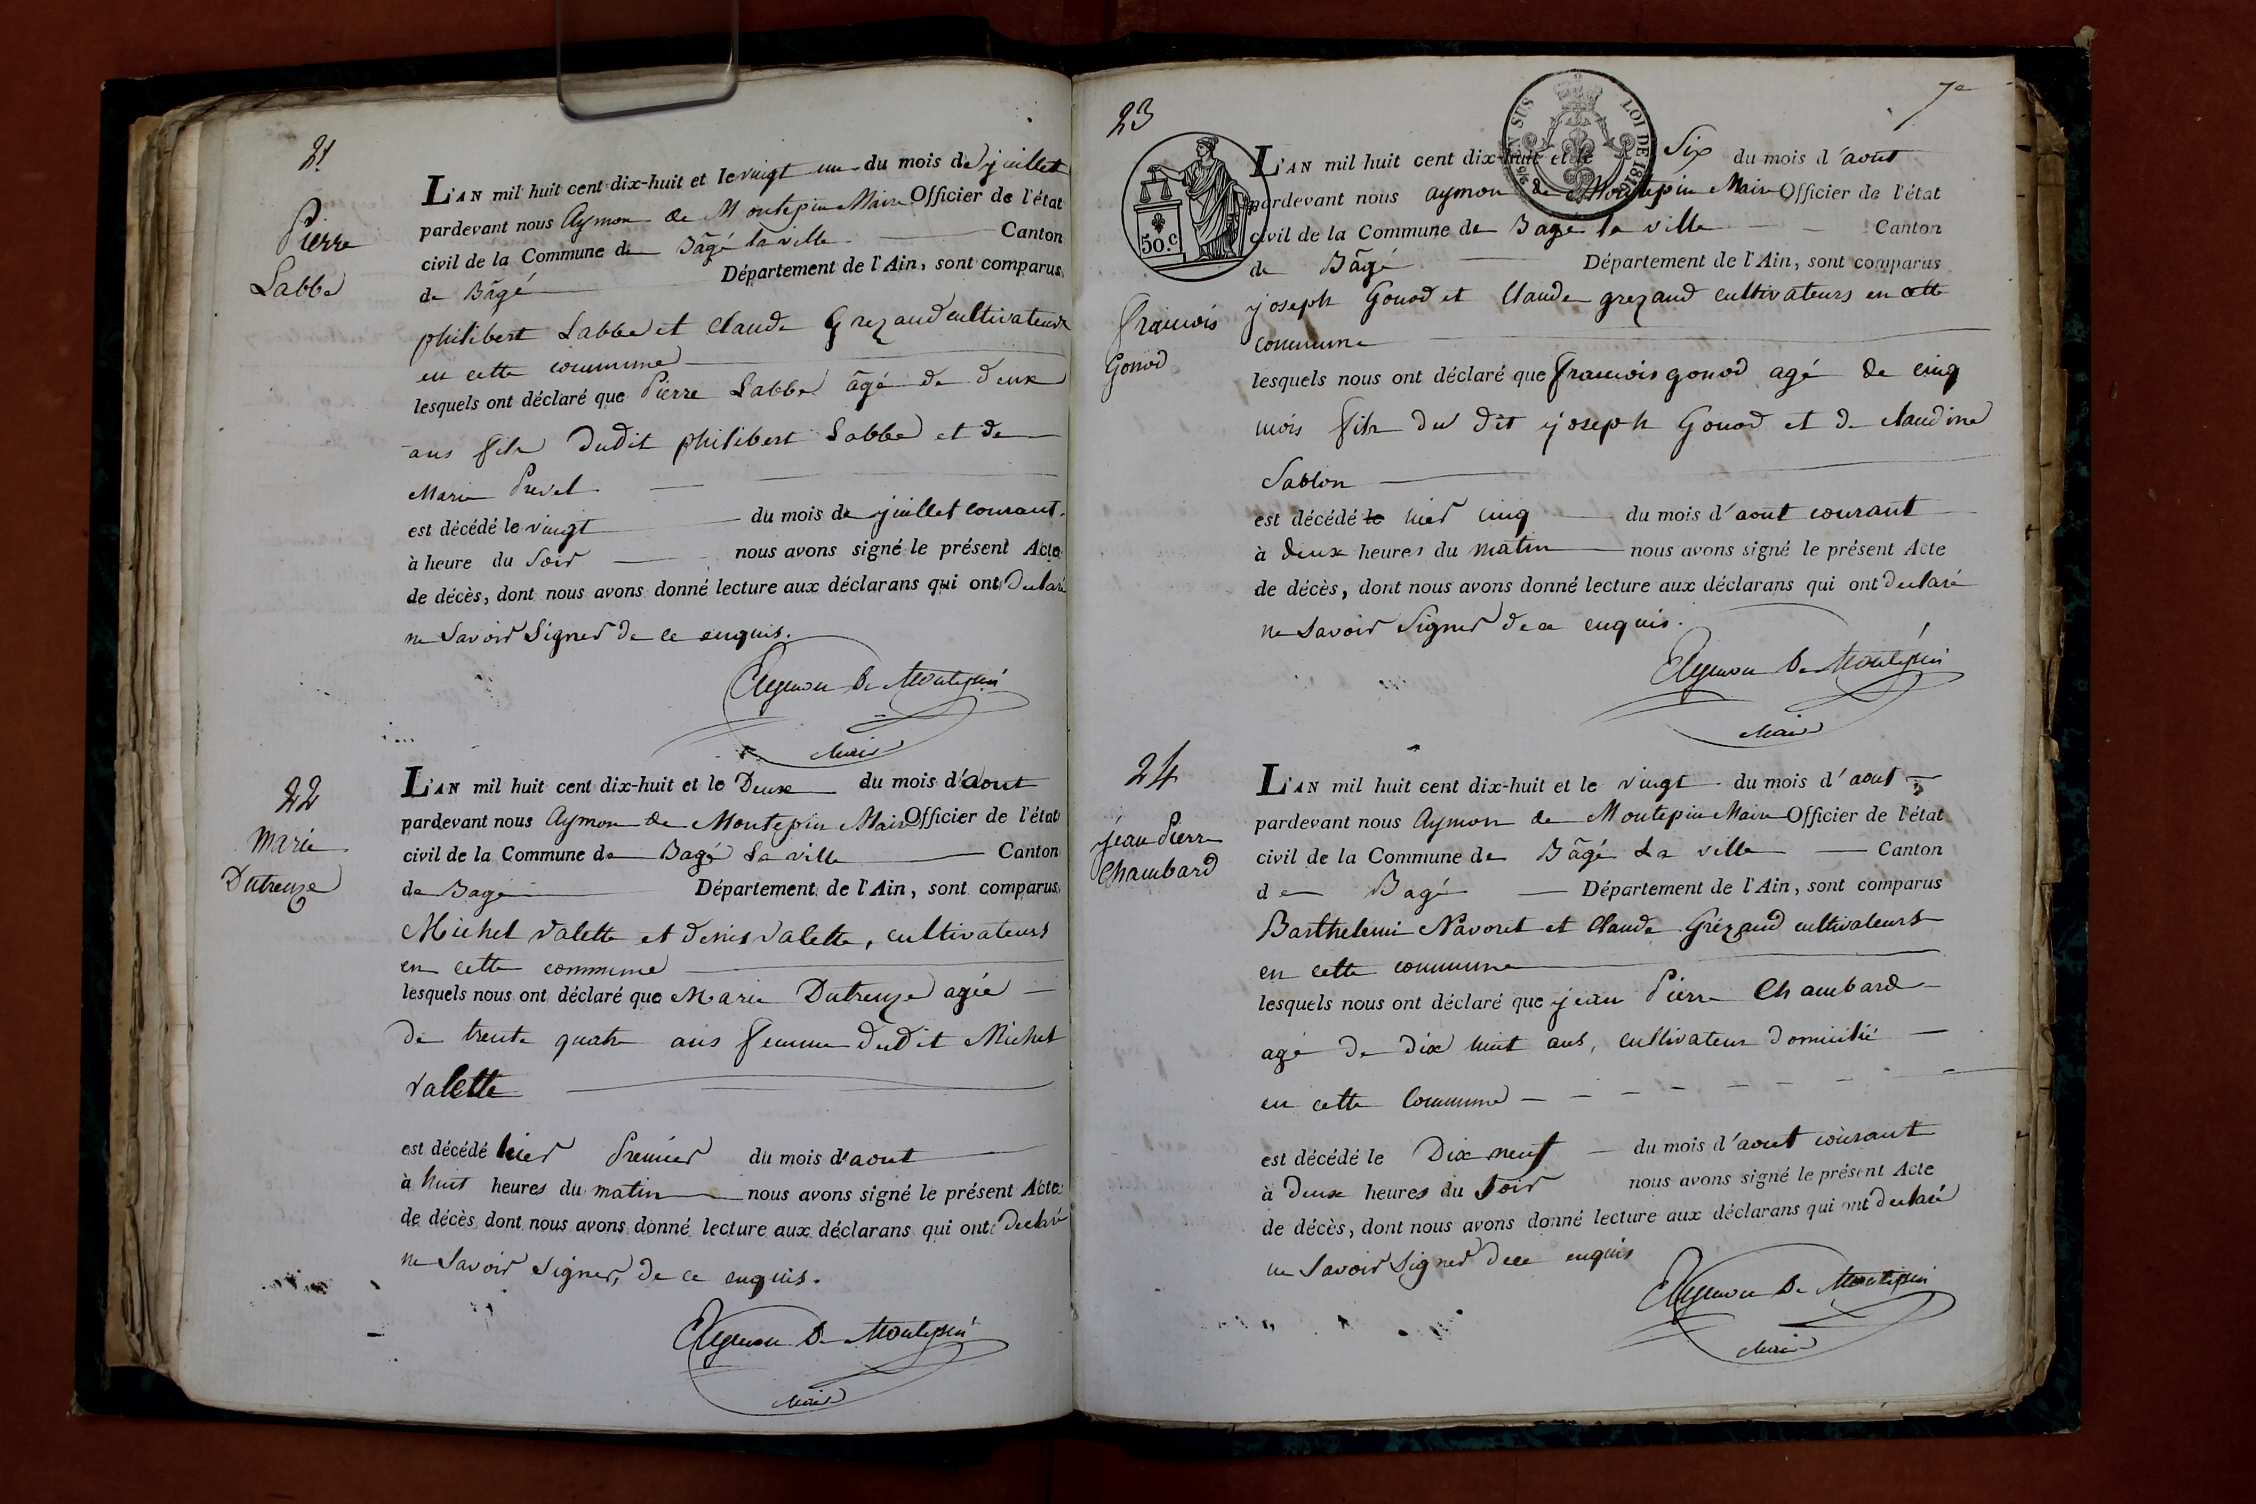 21
Pierre
Labbe
L'AN mil huit cent dix-huit et le vingt un du mois de juillet
pardevant nous Aymon de Montepin Maire Officier de l'état
civil de la Commune de Bâgé la ville Canton
de Bâgé Département de l'Ain, sont comparus
philibert Labbe et Claude Grezaud cultivateurs
en cette commune
lesquels ont déclaré que Pierre Labbe âgé de deux
ans fils dudit philibert Labbe et de
Marie Prevel
est décédé le vingt du mois de juillet courant.
à heure du soir nous avons signé le présent Acte
de décès, dont nous avons donné lecture aux déclarans qui ont declaré
ne savoir signer de ce enquis.
Aymon De Montepin
Maire
22
Marie
Dutreuze
L'AN mil huit cent dix-huit et le Deux du mois d'aout
pardevant nous Aymon de Montepin Maire Officier de l'état
civil de la Commune de Bagé la ville Canton
de Bagé Département de l'Ain, sont comparus
Michel Valette et denis Valette, cultivateurs
en cette commune
lesquels nous ont déclaré que Marie Dutreuze agée
de trente quatre ans femme dudit Michel
Valette
est décédé hier Premier du mois d'aout
à huit heures du matin nous avons signé le présent Acte
de décès dont nous avons donné lecture aux déclarans qui ont declaré
ne savoir signer, de ce enquis.
Aymon De Montepin
Maire
7e
23
EN SUS
LOI DE 1816
50.c
francois
Gonod
L'AN mil huit cent dix-huit et le Six du mois d'aout
pardevant nous aymon de Montepin Maire Officier de l'état
civil de la Commune de Bagé la ville Canton
de Bâgé Département de l'Ain, sont comparus
joseph Gonod et Claude grezaud cultivateurs en cette
commune
lesquels nous ont déclaré que francois gonod agé de cinq
mois fils du dit joseph Gonod et de claudine
Sablon
est décédé le hier cinq du mois d'aout courant
à deux heures du matin nous avons signé le présent Acte
de décès, dont nous avons donné lecture aux déclarans qui ont declaré
ne savoir signer de ce enquis.
Aymon De Montepin
Maire
24
jean Pierre
Chambard
L'AN mil huit cent dix-huit et le vingt du mois d'aout
pardevant nous Aymon de Montepin Maire Officier de l'état
civil de la Commune de Bâgé La ville Canton
de Bagé Département de l'Ain, sont comparus
Barthelemi Navoret et Claude Grézaud cultivateurs
en cette commune
lesquels nous ont déclaré que jean Pierre Chambard
agé de dix huit ans, cultivateur domicilié
en cette Commune
est décédé le Dix neuf du mois d'aout courant
à deux heures du soir nous avons signé le présent Acte
de décès, dont nous avons donné lecture aux déclarans qui ont declaré
ne savoir signer de ce enquis
Aymon De Montepin
Maire